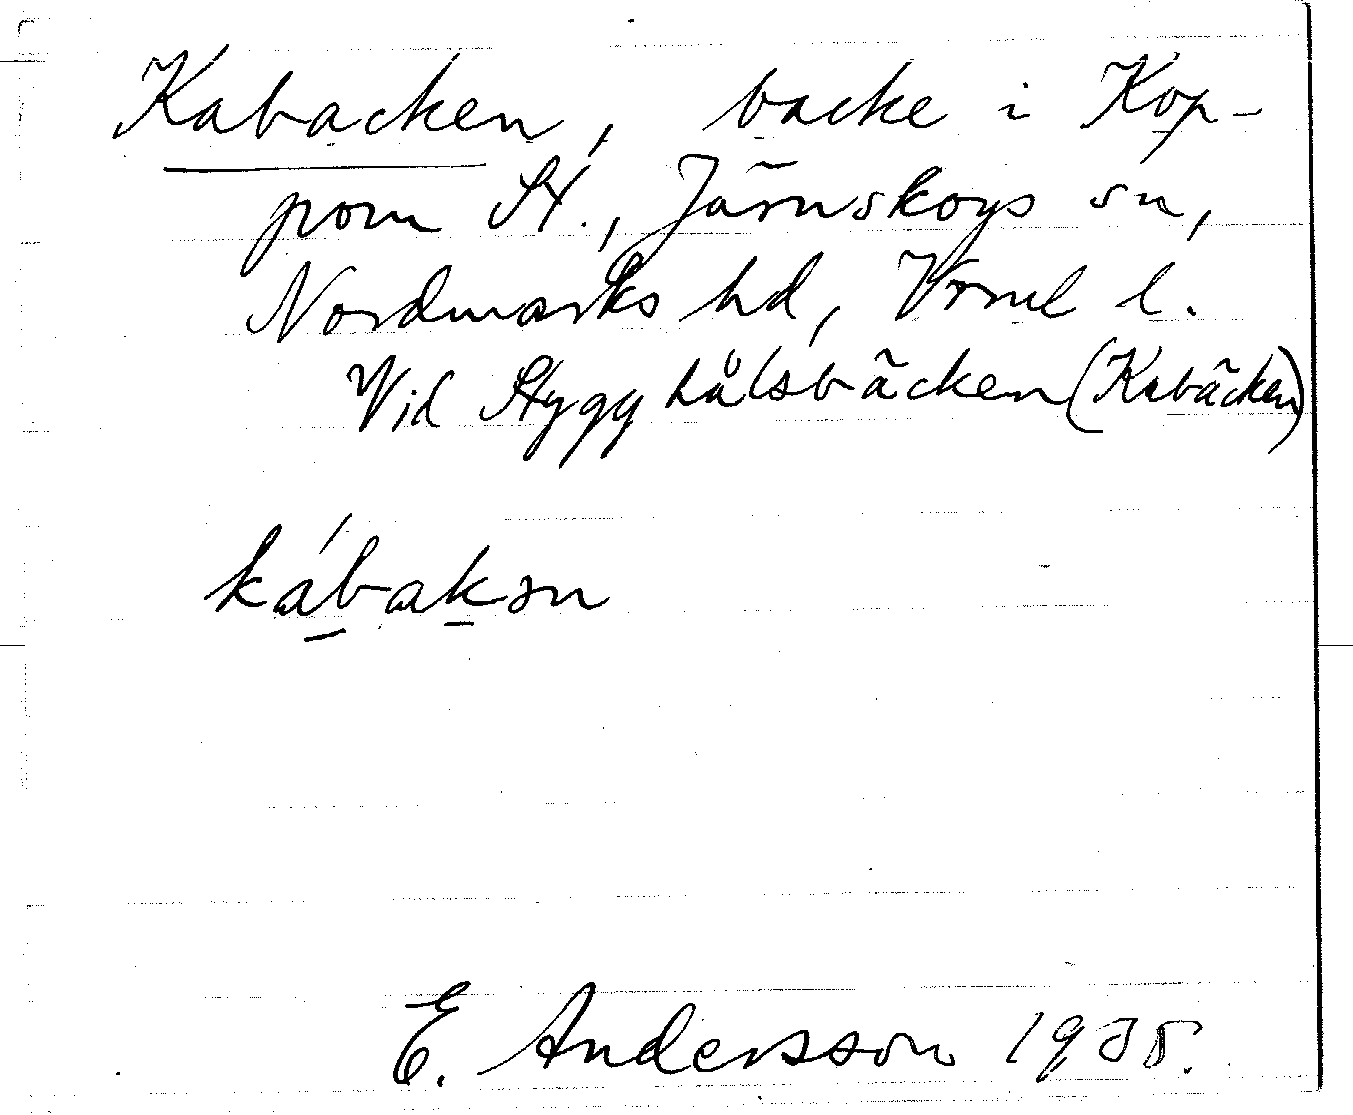 Kabacken, backe i Kop-
pom St., Järnskogs sn,
Nordmarks hd, Vrml l.
Vid Stygghålsbäcken (Kabäcken)
kábakən
E. Andersson 1935.